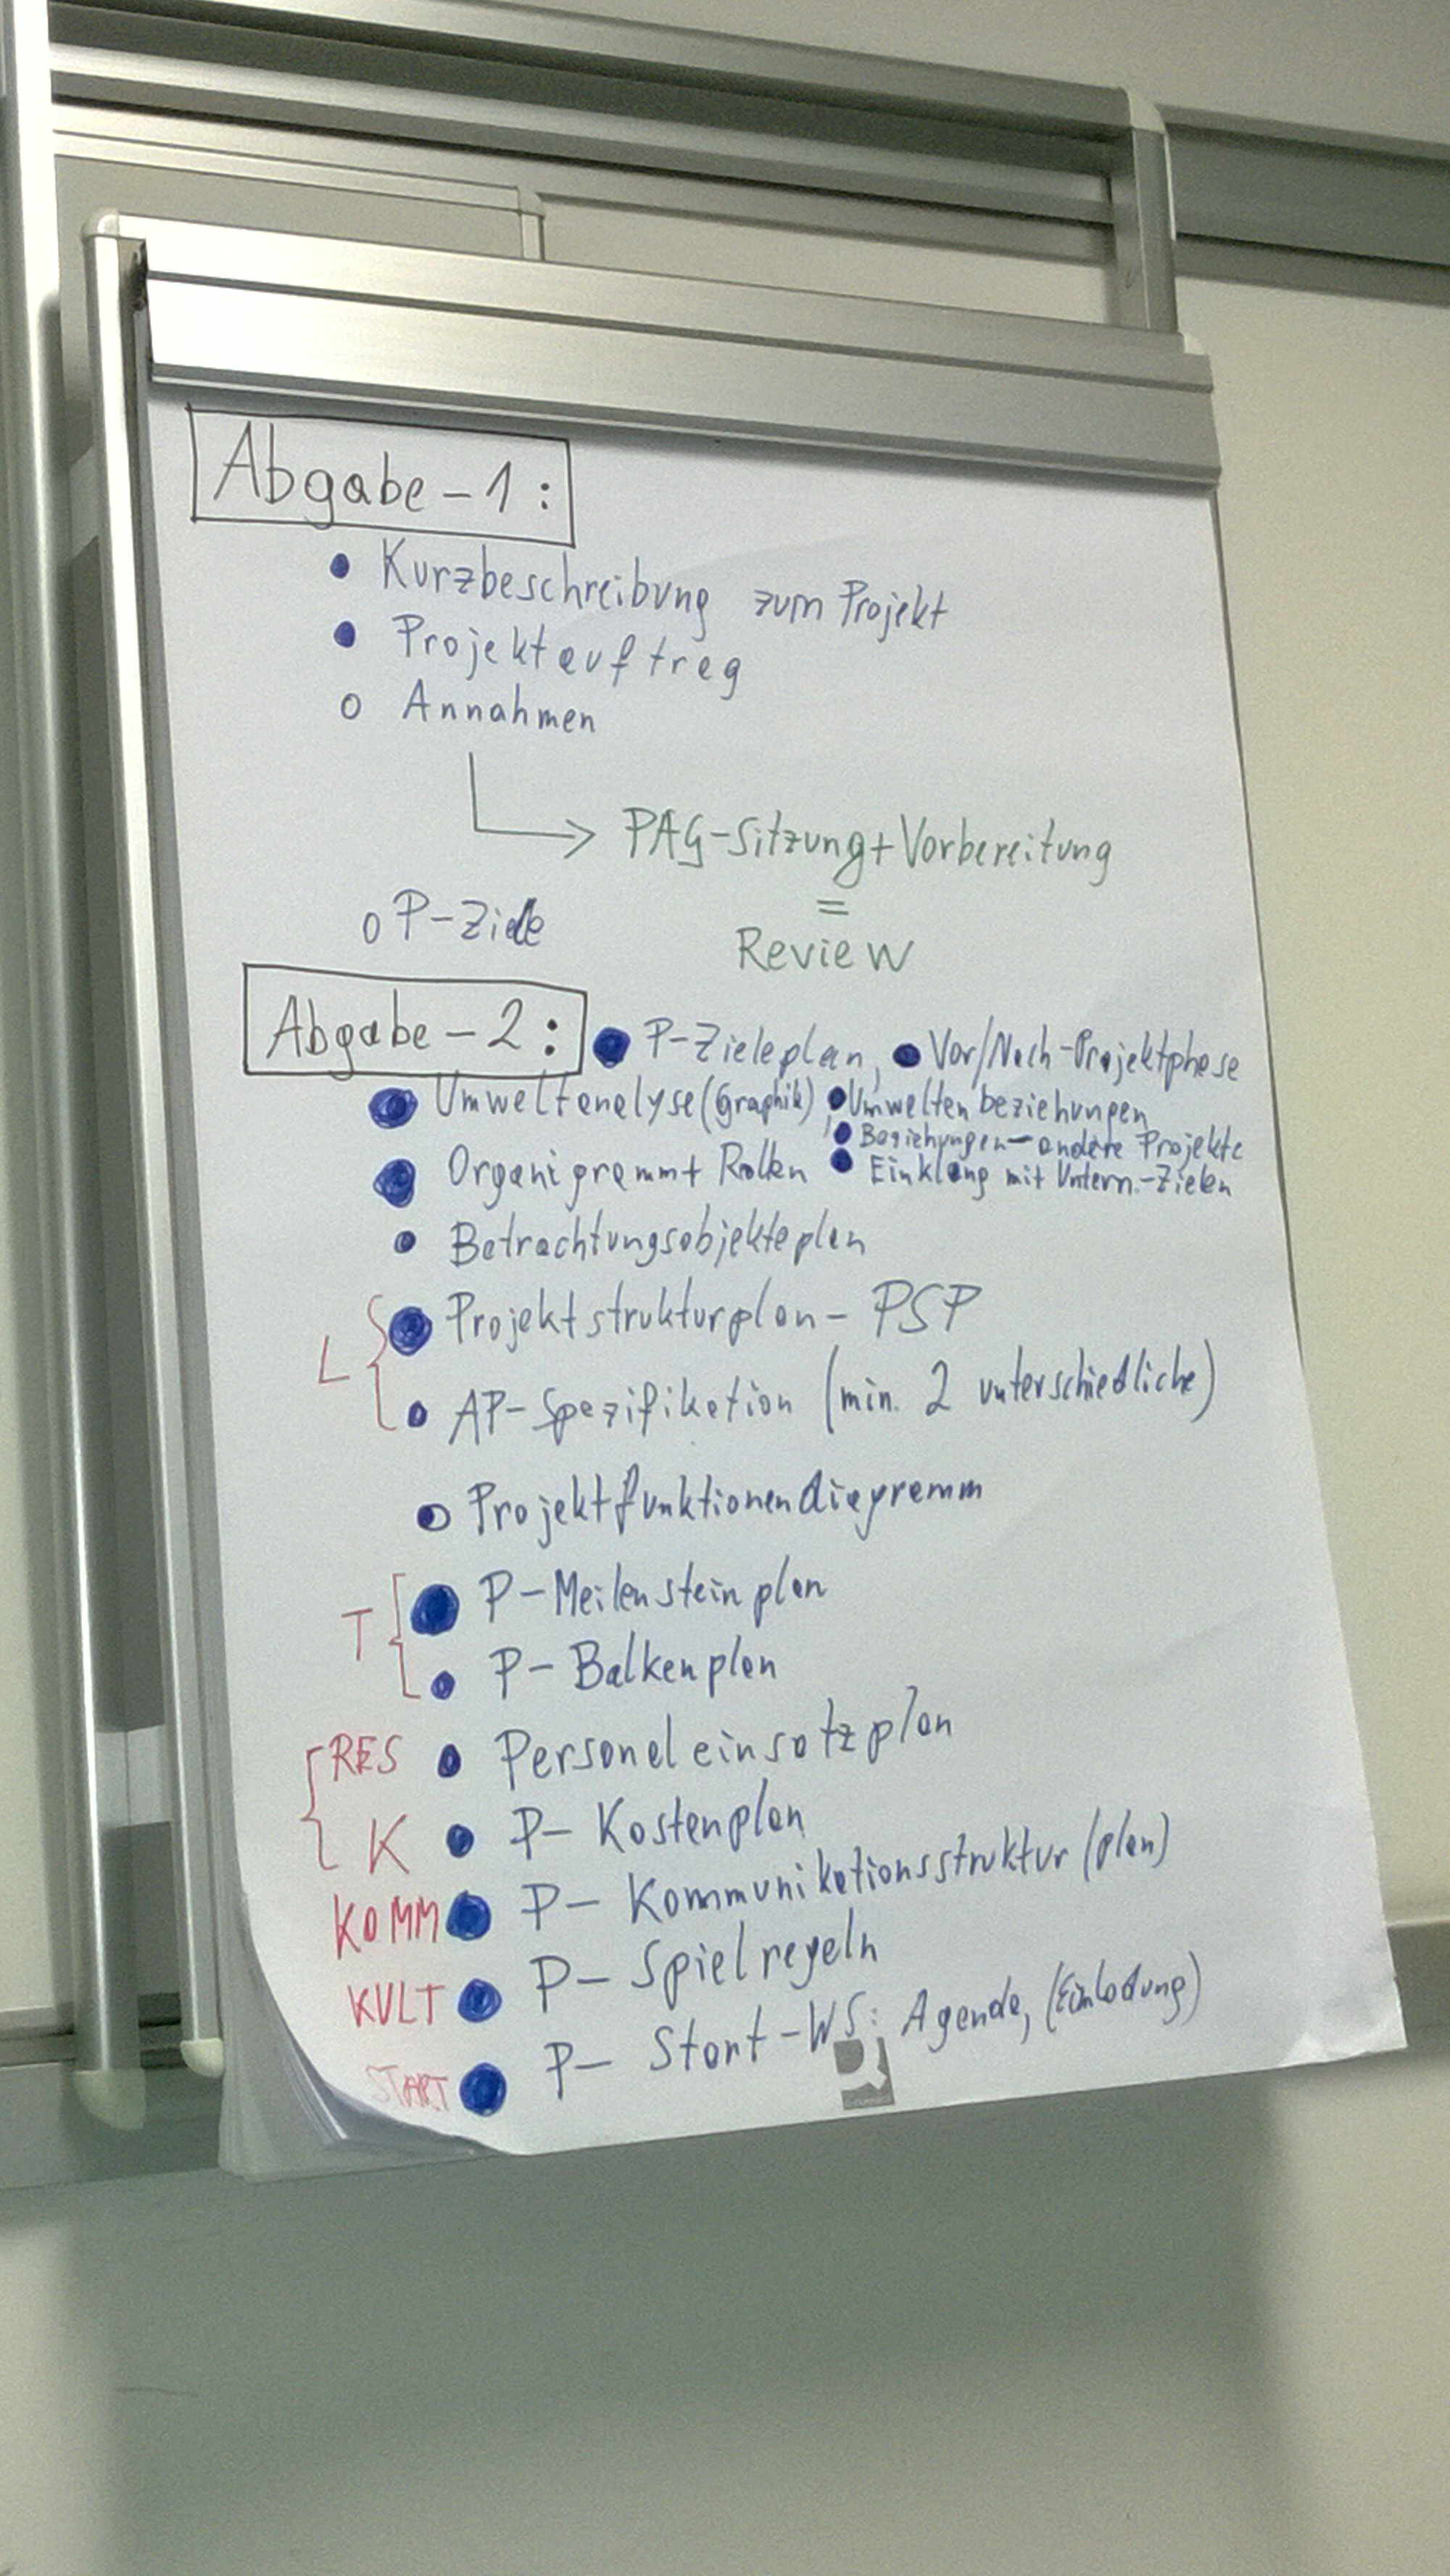 Abgabe-1:
• Kurzbeschreibung zum Projekt
• Projektauftrag
o Annahmen
PAG-Sitzung+Vorbereitung
=
Review
o P-Ziele
Abgabe-2: • P-Zieleplan, • Vor/Nach-Projektphase
• Umweltanalyse (Graphik), • Umweltenbeziehungen
• Beziehungen-andere Projekte
• Organigramm+ Rollen • Einklang mit Untern.-Zielen
• Betrachtungsobjekteplan
L • Projektstrukturplan - PSP
• AP-Spezifikation (min. 2 unterschiedliche)
• Projektfunktionendiagramm
T • P-Meilensteinplan
• P-Balkenplan
RES • Personaleinsatzplan
K • P-Kostenplan
KOMM • P-Kommunikationsstruktur (plan)
KULT • P-Spielregeln
START • P-Start-WS: Agenda, (Einladung)